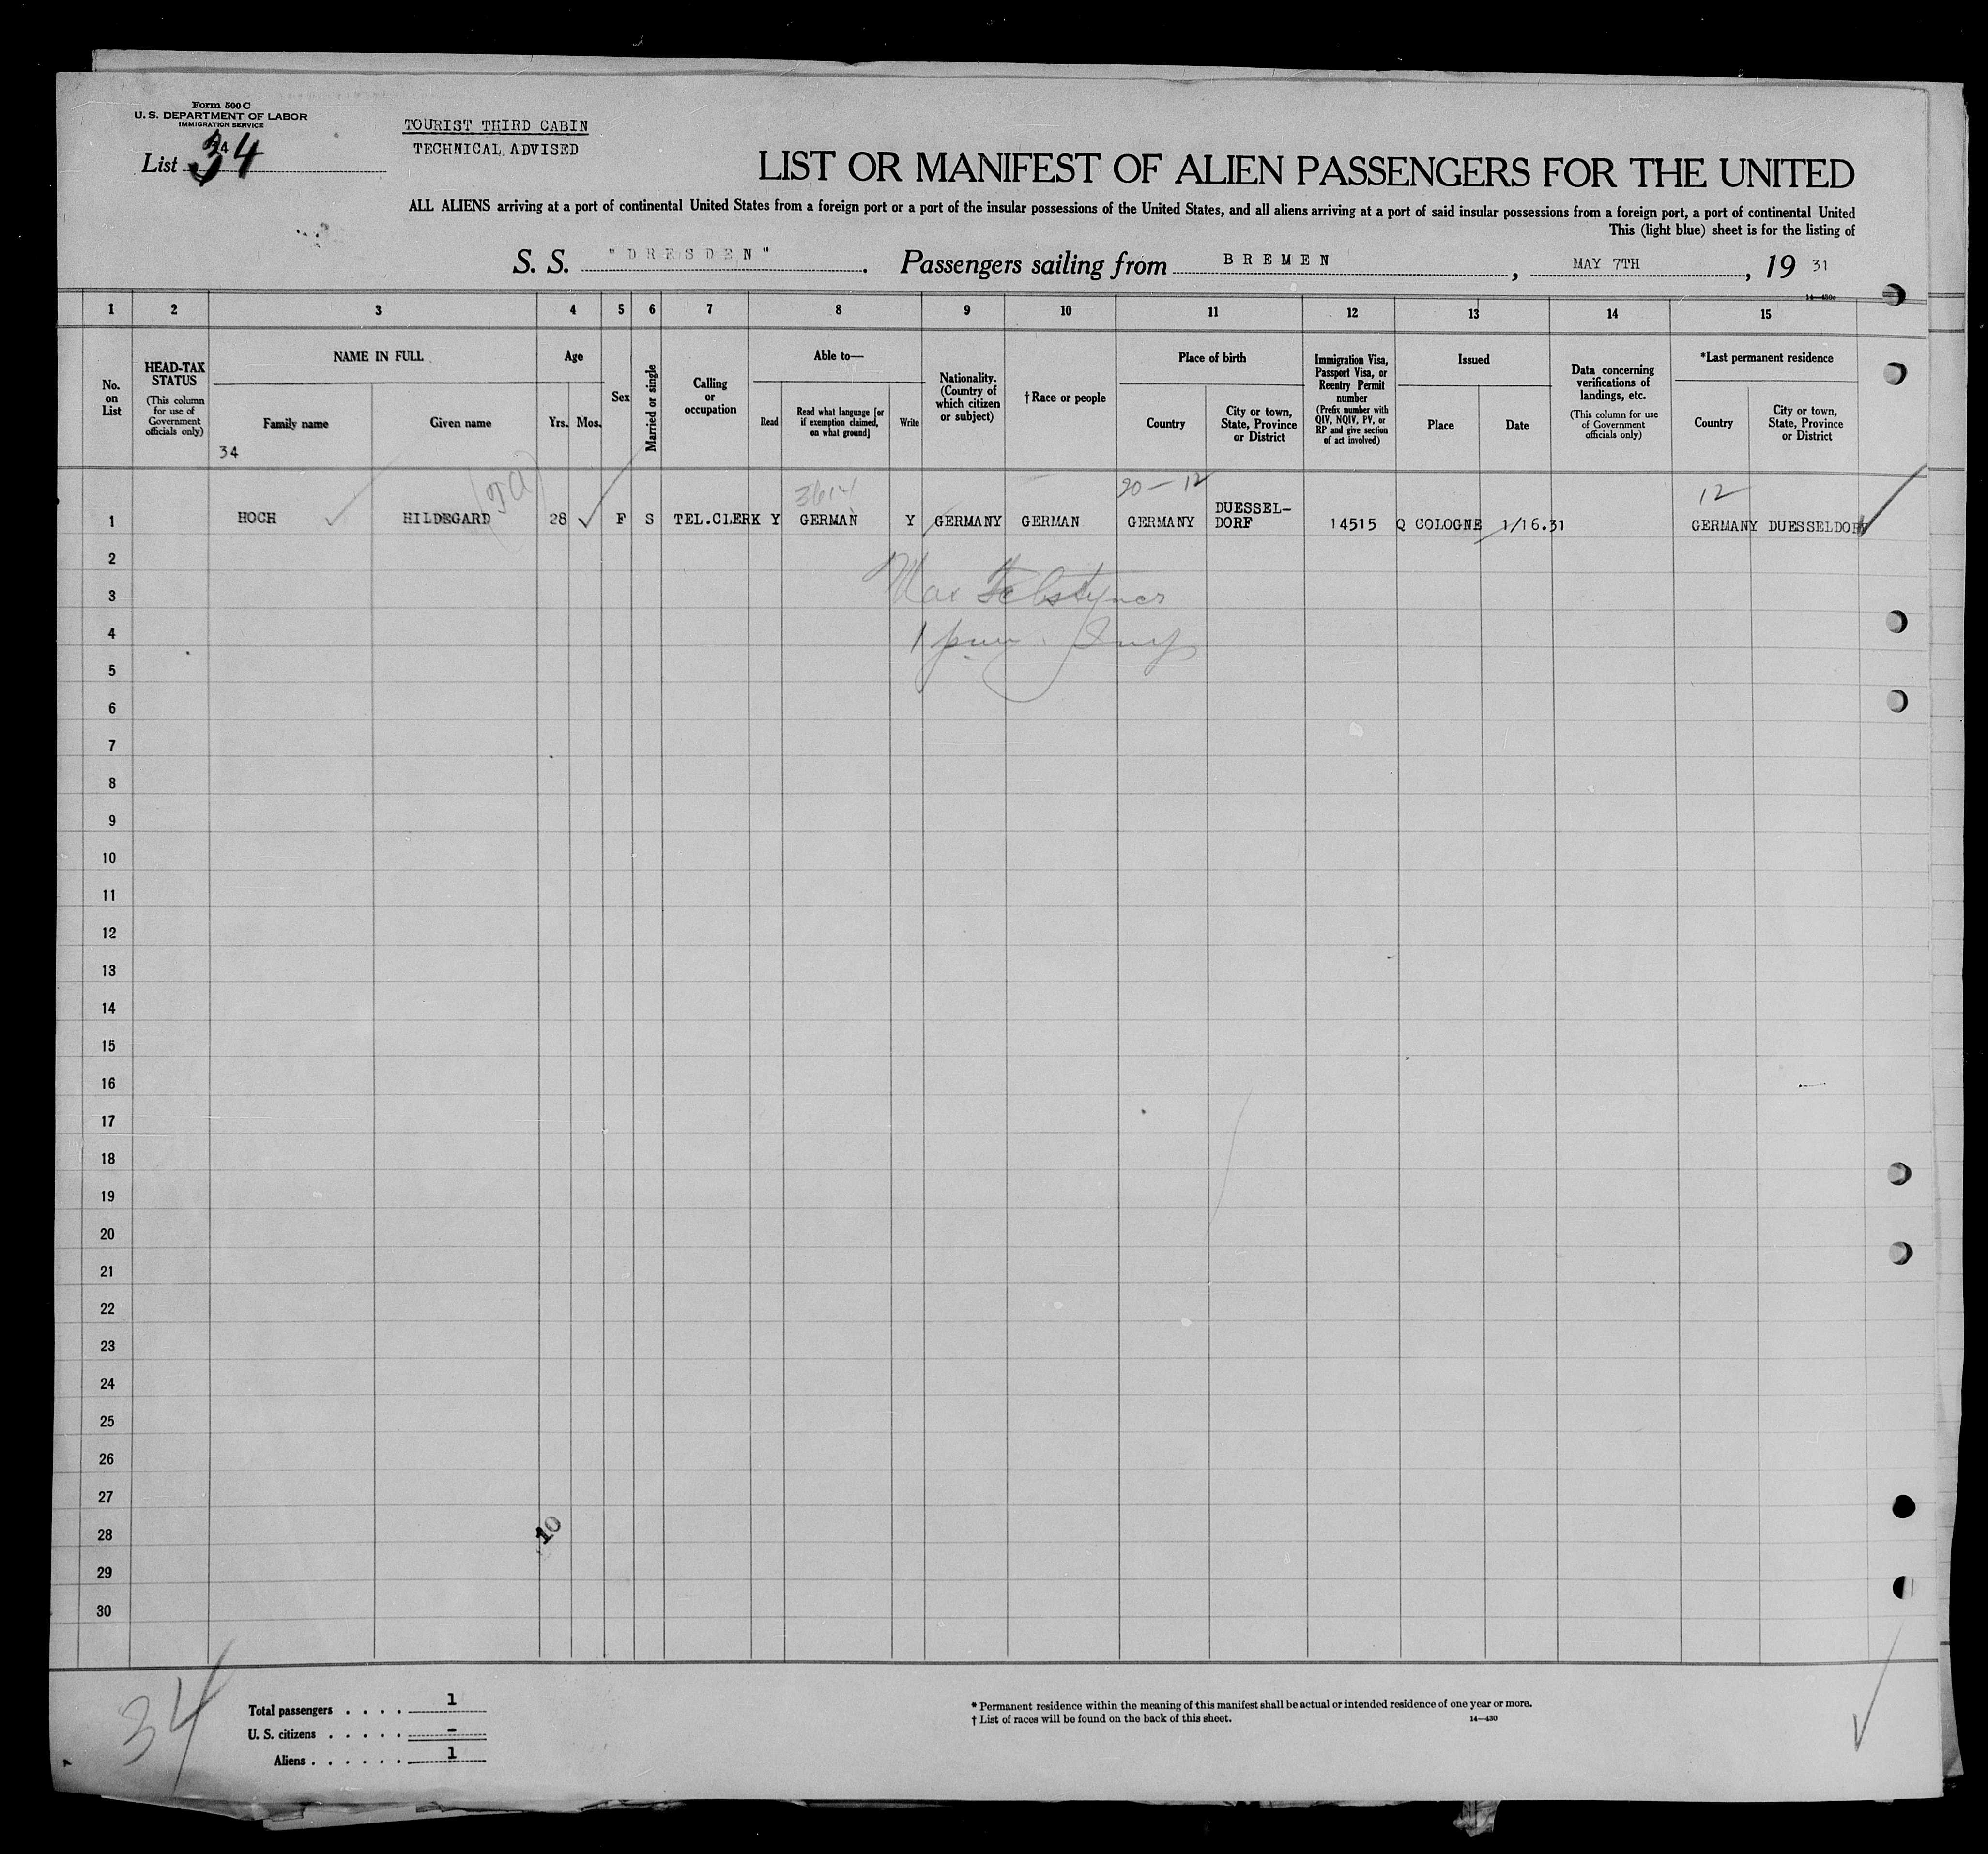 Form 500 C
U. S. DEPARTMENT OF LABOR
IMMIGRATION SERVICE
List 34
TOURIST THIRD CABIN
TECHNICAL ADVISED
LIST OR MANIFEST OF ALIEN PASSENGERS FOR THE UNITED
ALL ALIENS arriving at a port of continental United States from a foreign port or a port of the insular possessions of the United States, and all aliens arriving at a port of said insular possessions from a foreign port, a port of continental United
This (light blue) sheet is for the listing of
S. S. "DRESDEN". Passengers sailing from BREMEN, MAY 7TH, 19 31
14—430c
1 2 3 4 5 6 7 8 9 10 11 12 13 14 15
No. on List
HEAD-TAX STATUS (This column for use of Government officials only)
NAME IN FULL
Family name
Given name
34
Age
Yrs. Mos.
Sex
Married or single
Calling or occupation
Able to—
Read
Read what language [or if exemption claimed, on what ground]
Write
Nationality. (Country of which citizen or subject)
†Race or people
Place of birth
Country
City or town, State, Province or District
Immigration Visa, Passport Visa, or Reentry Permit number (Prefix number with QIV, NQIV, PV, or RP and give section of act involved)
Issued
Place
Date
Data concerning verifications of landings, etc. (This column for use of Government officials only)
*Last permanent residence
Country
City or town, State, Province or District
20 — 12
12
1 HOCH HILDEGARD 28 F S TEL.CLERK Y GERMAN Y GERMANY GERMAN GERMANY DUESSEL-DORF 14515 Q COLOGNE 1/16.31 GERMANY DUESSELDORF
2
3
4
5
6
7
8
9
10
11
12
13
14
15
16
17
18
19
20
21
22
23
24
25
26
27
28
29
30
10
34
Total passengers . . . . 1
U. S. citizens . . . . . -
Aliens . . . . . . 1
* Permanent residence within the meaning of this manifest shall be actual or intended residence of one year or more.
† List of races will be found on the back of this sheet.
14—430